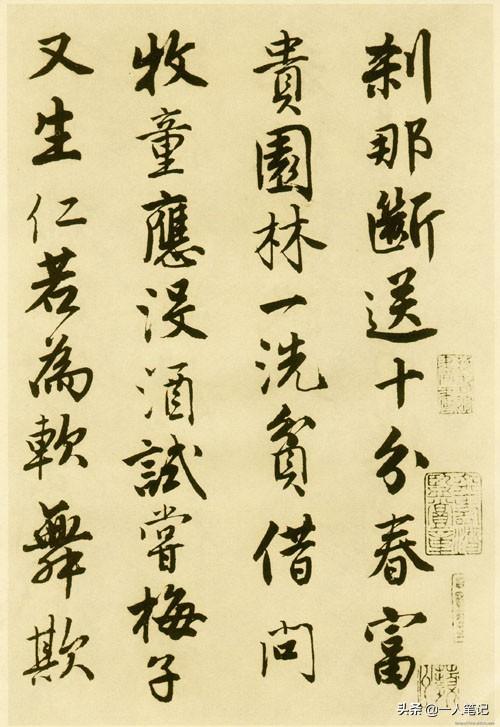 刹那斷送十分春富
貴園林一洗貧借問
牧童應没酒試嘗梅子
又生仁若為軟舞欺
头条 @一人笔记